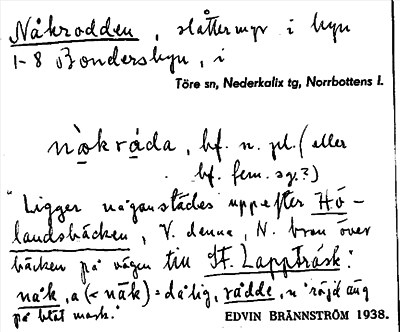 Nåkrodden, slåttermyr i byn
1-8 Bondersbyn, i
Töre sn, Nederkalix tg, Norrbottens l.
nåkråda, bf. n. pl. (eller
bf. fem. sg.?)
"Ligger någonstädes uppefter Hö-
landsbäcken, V. denna, N. bron över
bäcken på vägen till St. Lappträsk."
nåk, a (< nāk) = dålig, rådde, n röjd äng
på blöt mark."
EDVIN BRÄNNSTRÖM 1938.